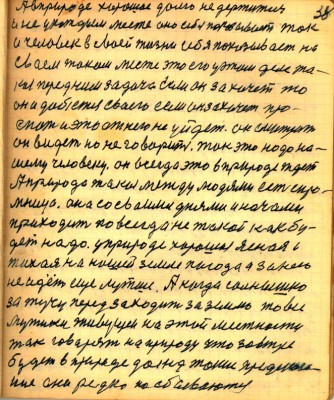 А в природе хорошое долго не держится
и не у каждым месте оно себя показывает так
и человек в своей жизни себя показывает на
своем таком месте это его у этом деле та-
кая передним задача если он захочет то
он и добется своего если он захочет про-
спит и это от него не уйдет. он смотрит
он видет но не говорить. так это надо на-
шему человеку. он всегда это в природе ждет
А природа такая между людями есть скро-
мница. она со своими днями и ночами
приходит по всегда не такой как бу-
дет надо. у природе хорошая ясная и
тихая на нашей земле погода а за нею
не идёт еще лутше. А когда солнышко
за тучу перед заходит за землю то все
мущины живущеи на этой местности
так говорят на природу что завтре
будет в природе дождь такие предпо
ние они редко но сбываются
38